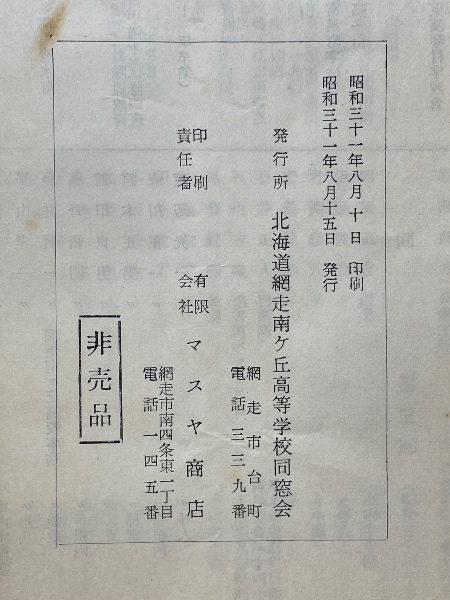 昭和三十一年八月十日 印刷
昭和三十一年八月十五日 発行
発行所 北海道網走南ケ丘高等学校同窓会
網走市台町
電話三三九番
印刷
責任者
有限
会社
マスヤ商店
網走市南四条東一丁目
電話一四五番
非売品